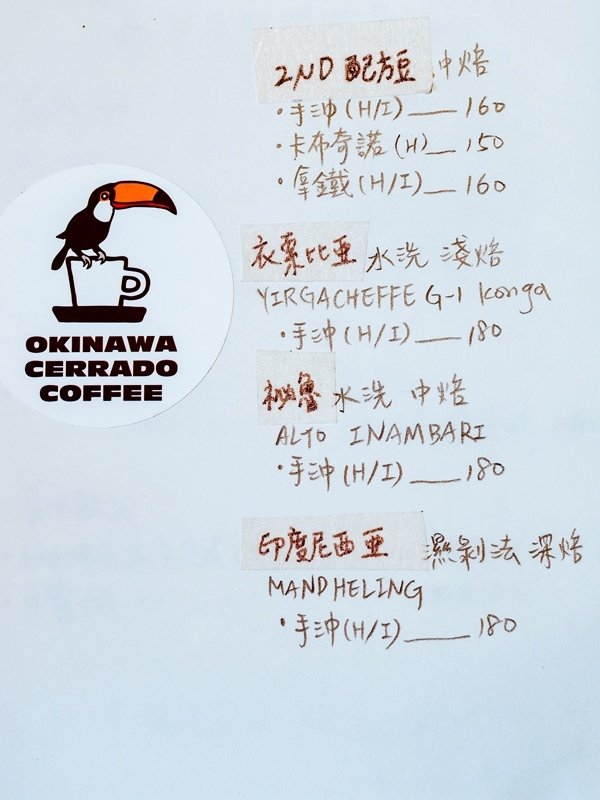 2ND 配方豆 中焙
・手沖(H/I)——160
・卡布奇諾(H)—150
・拿鐵(H/I)—160
衣索比亞 水洗 淺焙
YIRGACHEFFE G-1 Konga
・手沖(H/I)——180
祕魯 水洗 中焙
ALTO INAMBARI
・手沖(H/I)——180
印度尼西亞 濕剝法 深焙
MANDHELING
・手沖(H/I)——180
OKINAWA
CERRADO
COFFEE